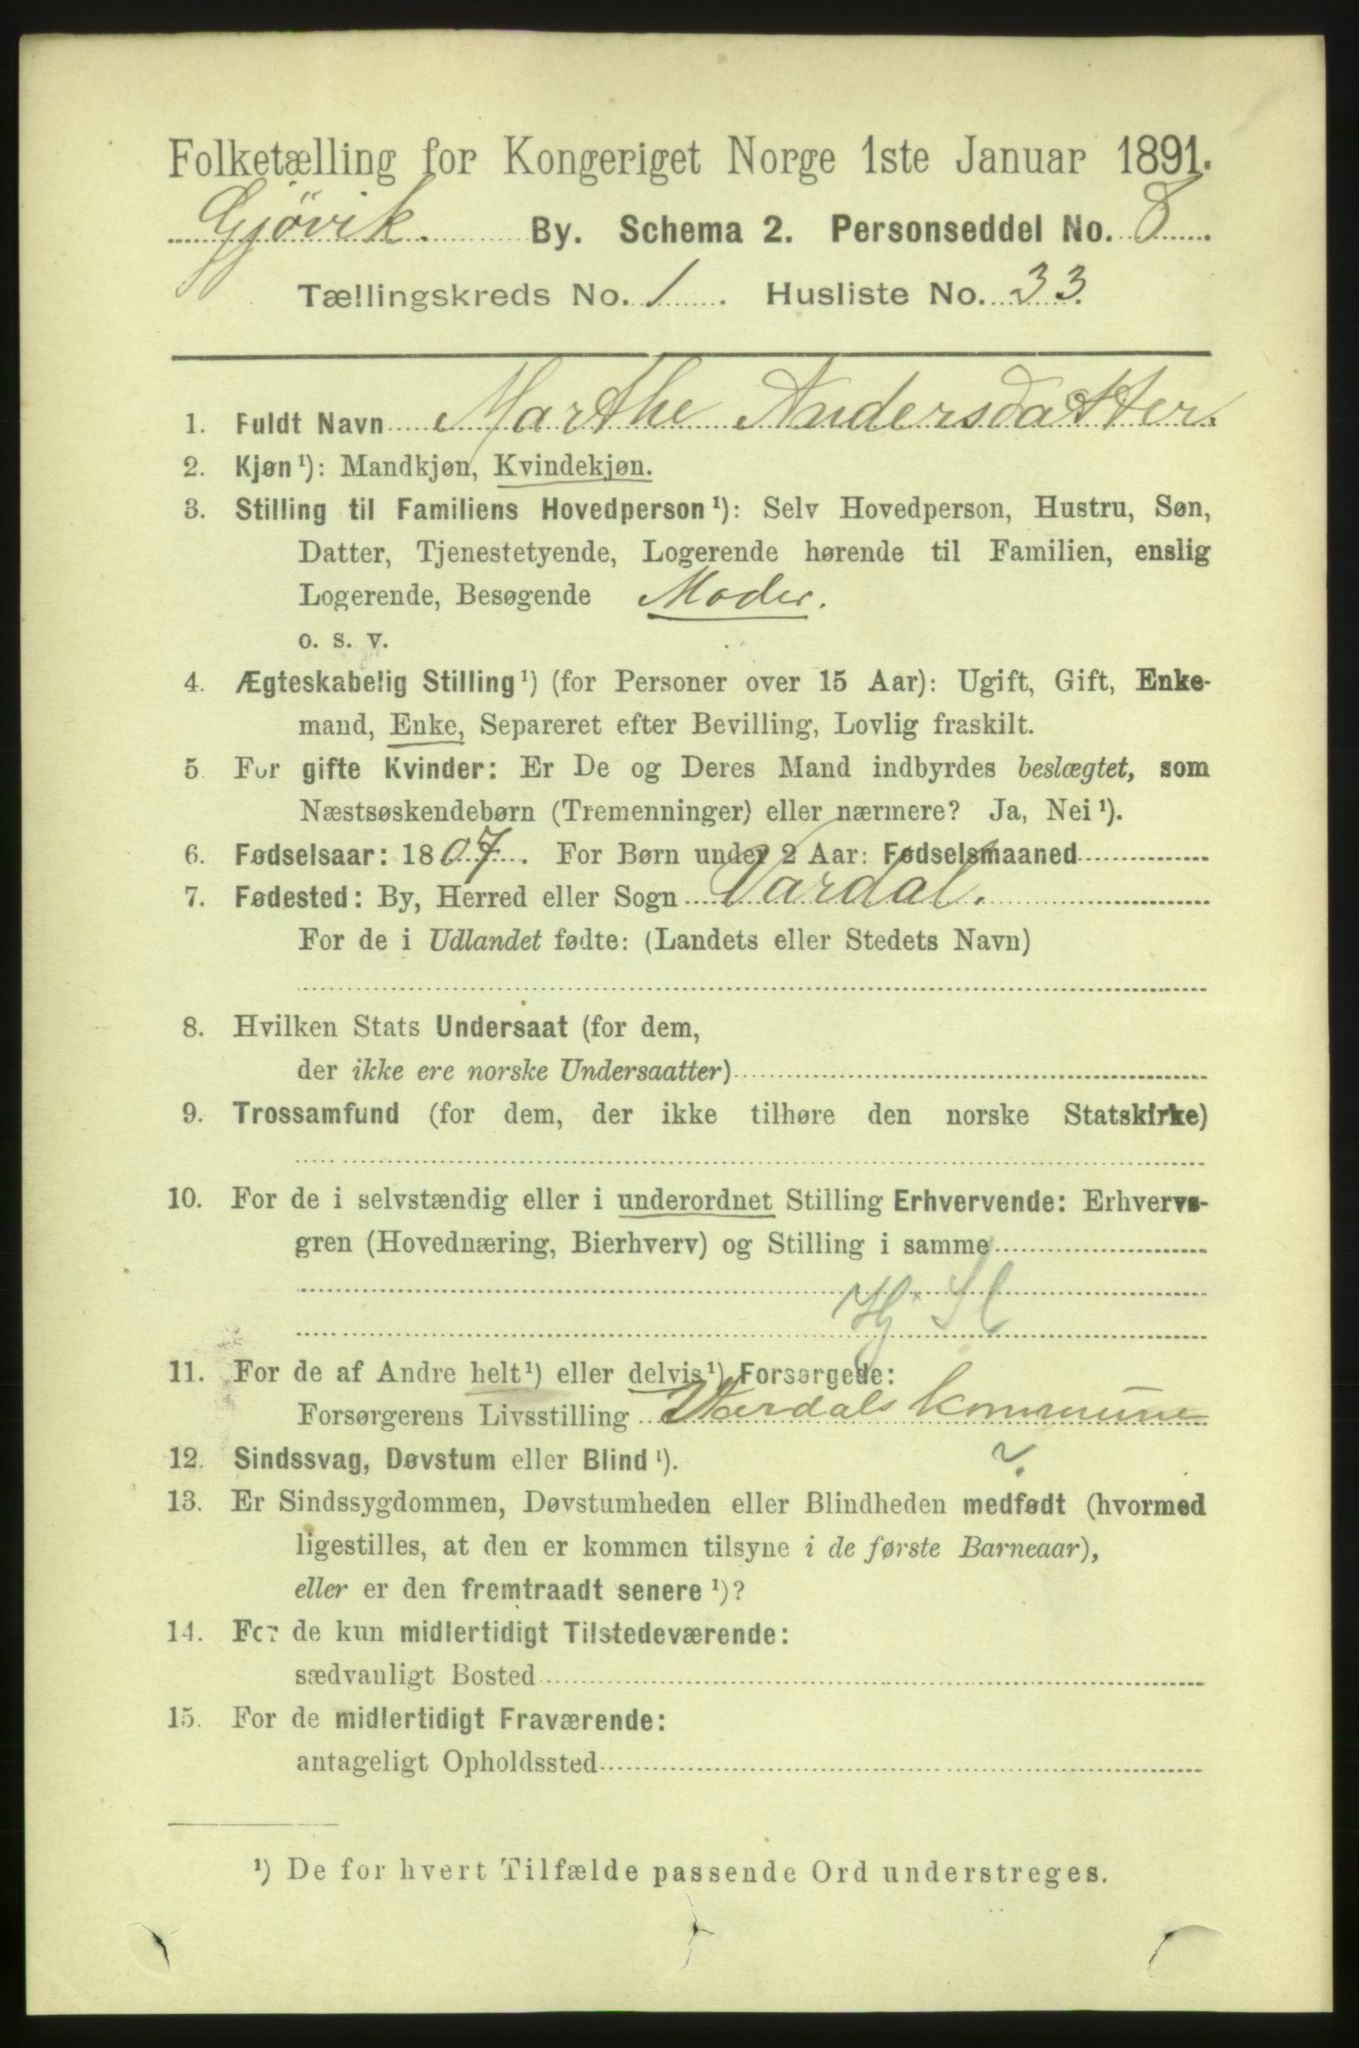 Folketælling for Kongeriget Norge 1ste Januar 1891.
Gjøvik. By. Schema 2. Personseddel No. 8
Tællingskreds No. 1. Husliste No. 33.
1. Fuldt Navn Marthe Andersdatter.
2. Kjøn¹): Mandkjøn, Kvindekjøn.
3. Stilling til Familiens Hovedperson¹): Selv Hovedperson, Hustru, Søn,
Datter, Tjenestetyende, Logerende hørende til Familien, enslig
Logerende, Besøgende Moder.
o. s. v.
4. Ægteskabelig Stilling¹) (for Personer over 15 Aar): Ugift, Gift, Enke-
mand, Enke, Separeret efter Bevilling, Lovlig fraskilt.
5 For gifte Kvinder: Er De og Deres Mand indbyrdes beslægtet, som
Næstsøskendebørn (Tremenninger) eller nærmere? Ja, Nei¹).
6. Fødselsaar: 1807. For Børn under 2 Aar: Fødselsmaaned
7. Fødested: By, Herred eller Sogn Vardal.
For de i Udlandet fødte: (Landets eller Stedets Navn)
8. Hvilken Stats Undersaat (for dem,
der ikke ere norske Undersaatter)
9. Trossamfund (for dem, der ikke tilhøre den norske Statskirke)
10. For de i selvstændig eller i underordnet Stilling Erhvervende: Erhvervs-
gren (Hovednæring, Bierhverv) og Stilling i samme
11. For de af Andre helt¹) eller delvis¹) Forsørgede:
Forsørgerens Livsstilling Vardals kommune
12. Sindssvag, Døvstum eller Blind¹). ?
13. Er Sindssygdommen, Døvstumheden eller Blindheden medfødt (hvormed
ligestilles, at den er kommen tilsyne i de første Barneaar),
eller er den fremtraadt senere¹)?
14. For de kun midlertidigt Tilstedeværende:
sædvanligt Bosted
15. For de midlertidigt Fraværende:
antageligt Opholdssted
¹) De for hvert Tilfælde passende Ord understreges.